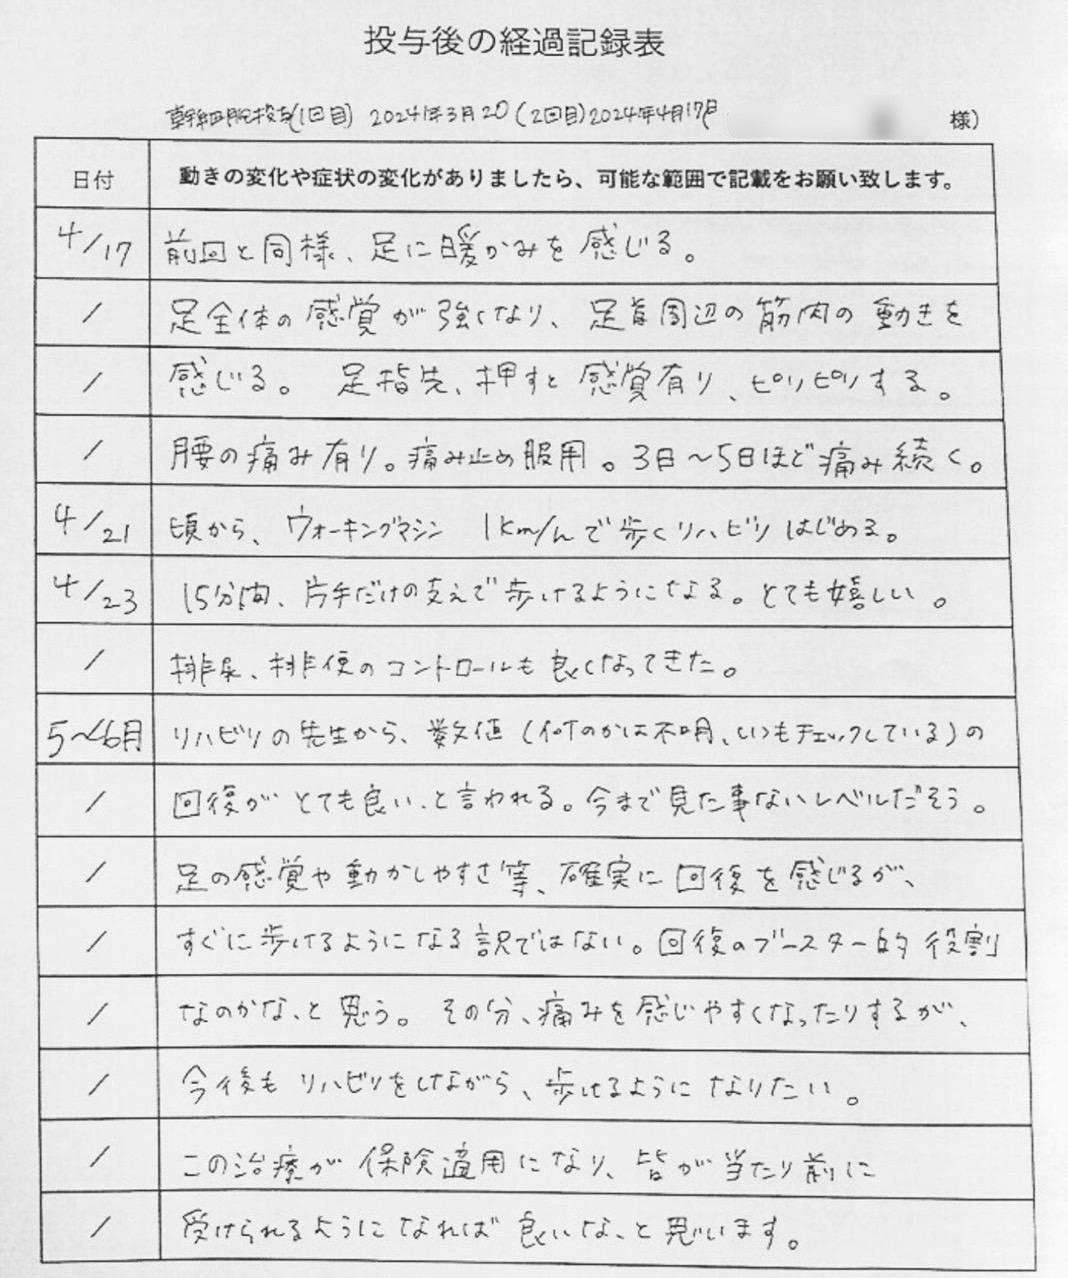 投与後の経過記録表
幹細胞投与(1回目) 2024年3月20 (2回目)2024年4月17日 様)
日付 動きの変化や症状の変化がありましたら、可能な範囲で記載をお願い致します。
4/17 前回と同様、足に暖かみを感じる。
/ 足全体の感覚が強くなり、足首周辺の筋肉の動きを
/ 感じる。 足指先、押すと感覚有り、ピリピリする。
/ 腰の痛み有り。痛み止め服用。3日〜5日ほど痛み続く。
4/21 頃から、ウォーキングマシン 1km/hで歩くリハビリはじめる。
4/23 15分間、片手だけの支えで歩けるようになる。とても嬉しい。
/ 排尿、排便のコントロールも良くなってきた。
5〜6月 リハビリの先生から、数値(何のかは不明、いつもチェックしている)の
/ 回復がとても良い、と言われる。今まで見た事ないレベルだそう。
/ 足の感覚や動かしやすさ等、確実に回復を感じるが、
/ すぐに歩けるようになる訳ではない。回復のブースター的役割
/ なのかな、と思う。その分、痛みを感じやすくなったりするが、
/ 今後もリハビリをしながら、歩けるようになりたい。
/ この治療が保険適用になり、皆が当たり前に
/ 受けられるようになれば良いな、と思います。